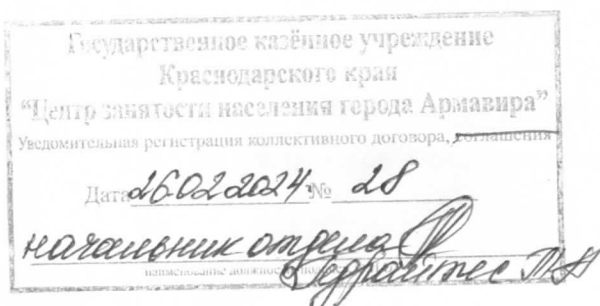 Государственное казённое учреждение
Краснодарского края
"Центр занятости населения города Армавира"
Уведомительная регистрация коллективного договора, соглашения
Дата 26.02.2024 № 28
начальник отдела
наименование должности